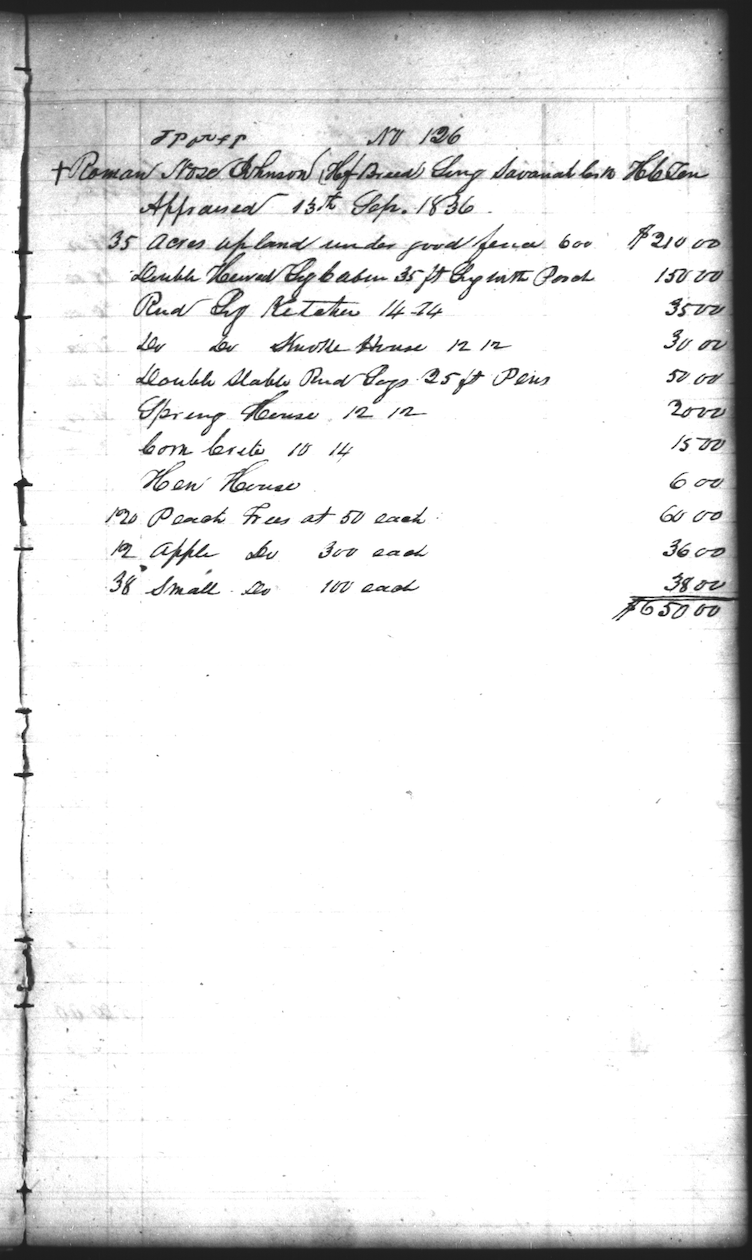 No 126
+ Roman Nose Johnson (Hf Breed) Living Savanah Creek
Appraised 13th Sep. 1836
35 Acres upland under good fence 600 $210 00
Double Hewed Log Cabin 35 ft Lg with Porch 150 00
Rud Log Kitchen 14-14 35 00
Do Do Smoke House 12 12 30 00
Double Stable Rud Logs 25 ft Pens 50 00
Spring House 12 12 20 00
Corn Crib 10 14 15 00
Hen House 6 00
120 Peach Trees at 50 each 60 00
12 Apple Do 300 each 36 00
38 Small Do 100 each 38 00
$650 00